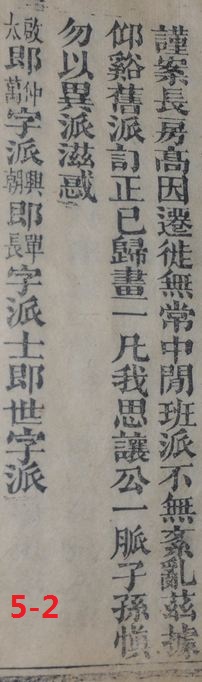 謹案長房髙因遷徙無常中閒班派不無紊亂茲據
仰谿舊派訂正已歸畫一凡我思讓公一脈子孫愼
勿以異派滋惑
啟太即仲萬字派興朝即單長字派士即世字派
5-2